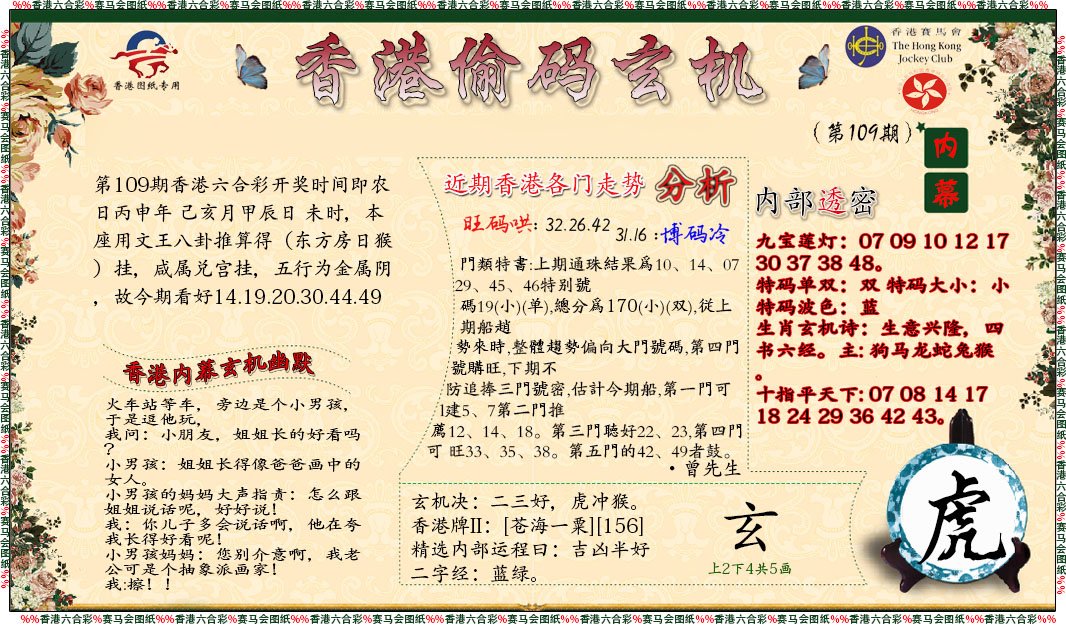 %%香港六合彩%赛马会图纸%%香港六合彩%赛马会图纸%%香港六合彩%赛马会图纸%%香港六合彩%赛马会图纸%%香港六合彩%赛马会图纸%%香港六合彩%赛马会图纸%%香港六合彩%%
香港图纸专用
香港偷码玄机
香港賽馬會
The Hong Kong
Jockey Club
(第109期)
内
幕
第109期香港六合彩开奖时间即农
日丙申年 己亥月甲辰日 未时，本
座用文王八卦推算得（东方房日猴
）挂，咸属兑宫挂，五行为金属阴
，故今期看好14.19.20.30.44.49
香港内幕玄机幽默
火车站等车，旁边是个小男孩，
于是逗他玩，
我问：小朋友，姐姐长的好看吗
？
小男孩：姐姐长得像爸爸画中的
女人。
小男孩的妈妈大声指责：怎么跟
姐姐说话呢，好好说！
我：你儿子多会说话啊，他在夸
我长得好看呢！
小男孩妈妈：您别介意啊，我老
公可是个抽象派画家！
我:擦！！
近期香港各门走势 分析
旺码哄: 32.26.42
31.16 :博码冷
門類特書:上期通珠結果爲10、14、07
29、45、46特别號
碼19(小)(单),總分爲170(小)(双),従上
期船趙
勢來時,整體趨勢偏向大門號碼,第四門
號購旺,下期不
防追捧三門號密,估计今期船,第一門可
1建5、7第二門推
薦12、14、18。第三門聴好22、23,第四門
可 旺33、35、38。第五門的42、49者鼓。
·曾先生
玄机决：二三好，虎冲猴。
香港牌II：[苍海一粟][156]
精选内部运程曰：吉凶半好
二字经：蓝绿。
玄
上2下4共5画
内部透密
九宝莲灯：07 09 10 12 17
30 37 38 48。
特码单双：双 特码大小：小
特码波色：蓝
生肖玄机诗：生意兴隆，四
书六经。主: 狗马龙蛇兔猴
。
十指平天下: 07 08 14 17
18 24 29 36 42 43。
虎
%%香港六合彩%赛马会图纸%%香港六合彩%赛马会图纸%%香港六合彩%赛马会图纸%%香港六合彩%赛马会图纸%%香港六合彩%赛马会图纸%%香港六合彩%赛马会图纸%%香港六合彩%%